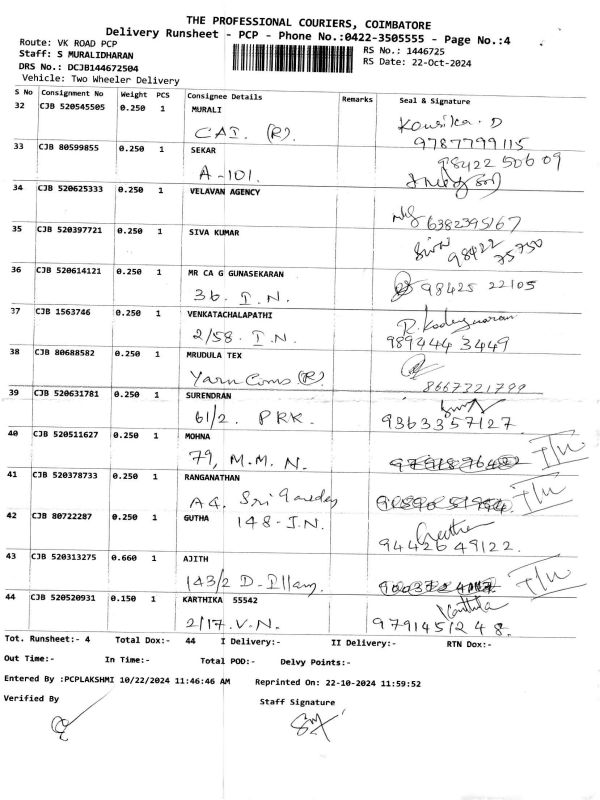 THE PROFESSIONAL COURIERS, COIMBATORE
Delivery Runsheet - PCP - Phone No.:0422-3505555 - Page No.:4
Route: VK ROAD PCP
RS No.: 1446725
Staff: S MURALIDHARAN
RS Date: 22-Oct-2024
DRS No.: DCJB144672504
Vehicle: Two Wheeler Delivery
S No Consignment No Weight PCS Consignee Details Remarks Seal & Signature
32 CJB 520545505 0.250 1 MURALI
CAI. (R). Kousika. D
9787799115
33 CJB 80599855 0.250 1 SEKAR
A-101. 98422 50609
34 CJB 520625333 0.250 1 VELAVAN AGENCY
6382395167
35 CJB 520397721 0.250 1 SIVA KUMAR
Siva 98422 75750
36 CJB 520614121 0.250 1 MR CA G GUNASEKARAN
36. I.N. 98425 22105
37 CJB 1563746 0.250 1 VENKATACHALAPATHI
2/58. I.N. 989444 3449
38 CJB 80688582 0.250 1 MRUDULA TEX
Yarn Coms (R) 8667321799
39 CJB 520631781 0.250 1 SURENDRAN
61/2. PRK. 9363357127.
40 CJB 520511627 0.250 1 MOHNA
79, M.M.N.
41 CJB 520378733 0.250 1 RANGANATHAN
A4. Sri
42 CJB 80722287 0.250 1 GUTHA 148-I.N.
94426 49122.
43 CJB 520313275 0.660 1 AJITH
143/2 D-
44 CJB 520520931 0.150 1 KARTHIKA 55542
2/17.V.N. Karthika
9791451248.
Tot. Runsheet:- 4 Total Dox:- 44 I Delivery:- II Delivery:- RTN Dox:-
Out Time:- In Time:- Total POD:- Delvy Points:-
Entered By :PCPLAKSHMI 10/22/2024 11:46:46 AM Reprinted On: 22-10-2024 11:59:52
Verified By Staff Signature